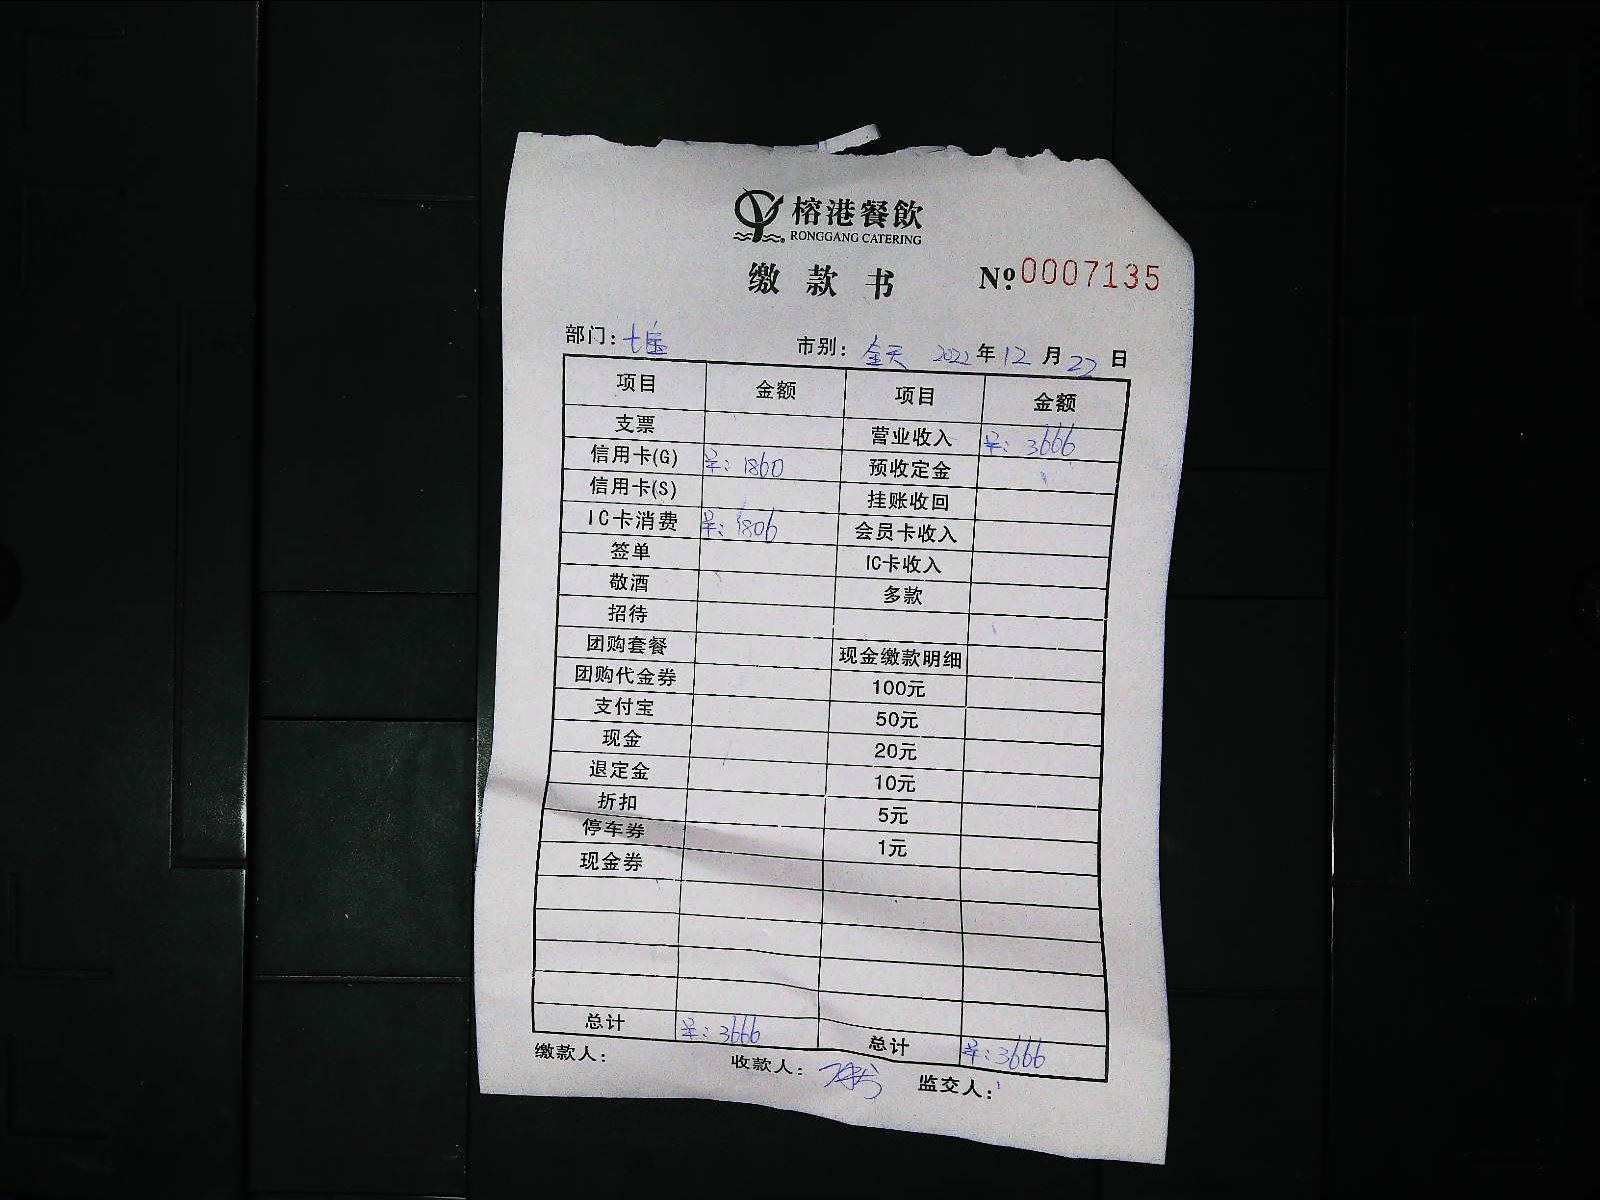 榕港餐飲
RONGGANG CATERING
缴款书 No. 0007135
部门：七宝 市别：全天 2022年12月22日
项目 金额 项目 金额
支票 营业收入 ¥：3666
信用卡(G) ¥：1860 预收定金
信用卡(S) 挂账收回
IC卡消费 ¥：1806 会员卡收入
签单 IC卡收入
敬酒 多款
招待
团购套餐 现金缴款明细
团购代金券 100元
支付宝 50元
现金 20元
退定金 10元
折扣 5元
停车券 1元
现金券
总计 ¥：3666 总计 ¥：3666
缴款人： 收款人： 监交人：